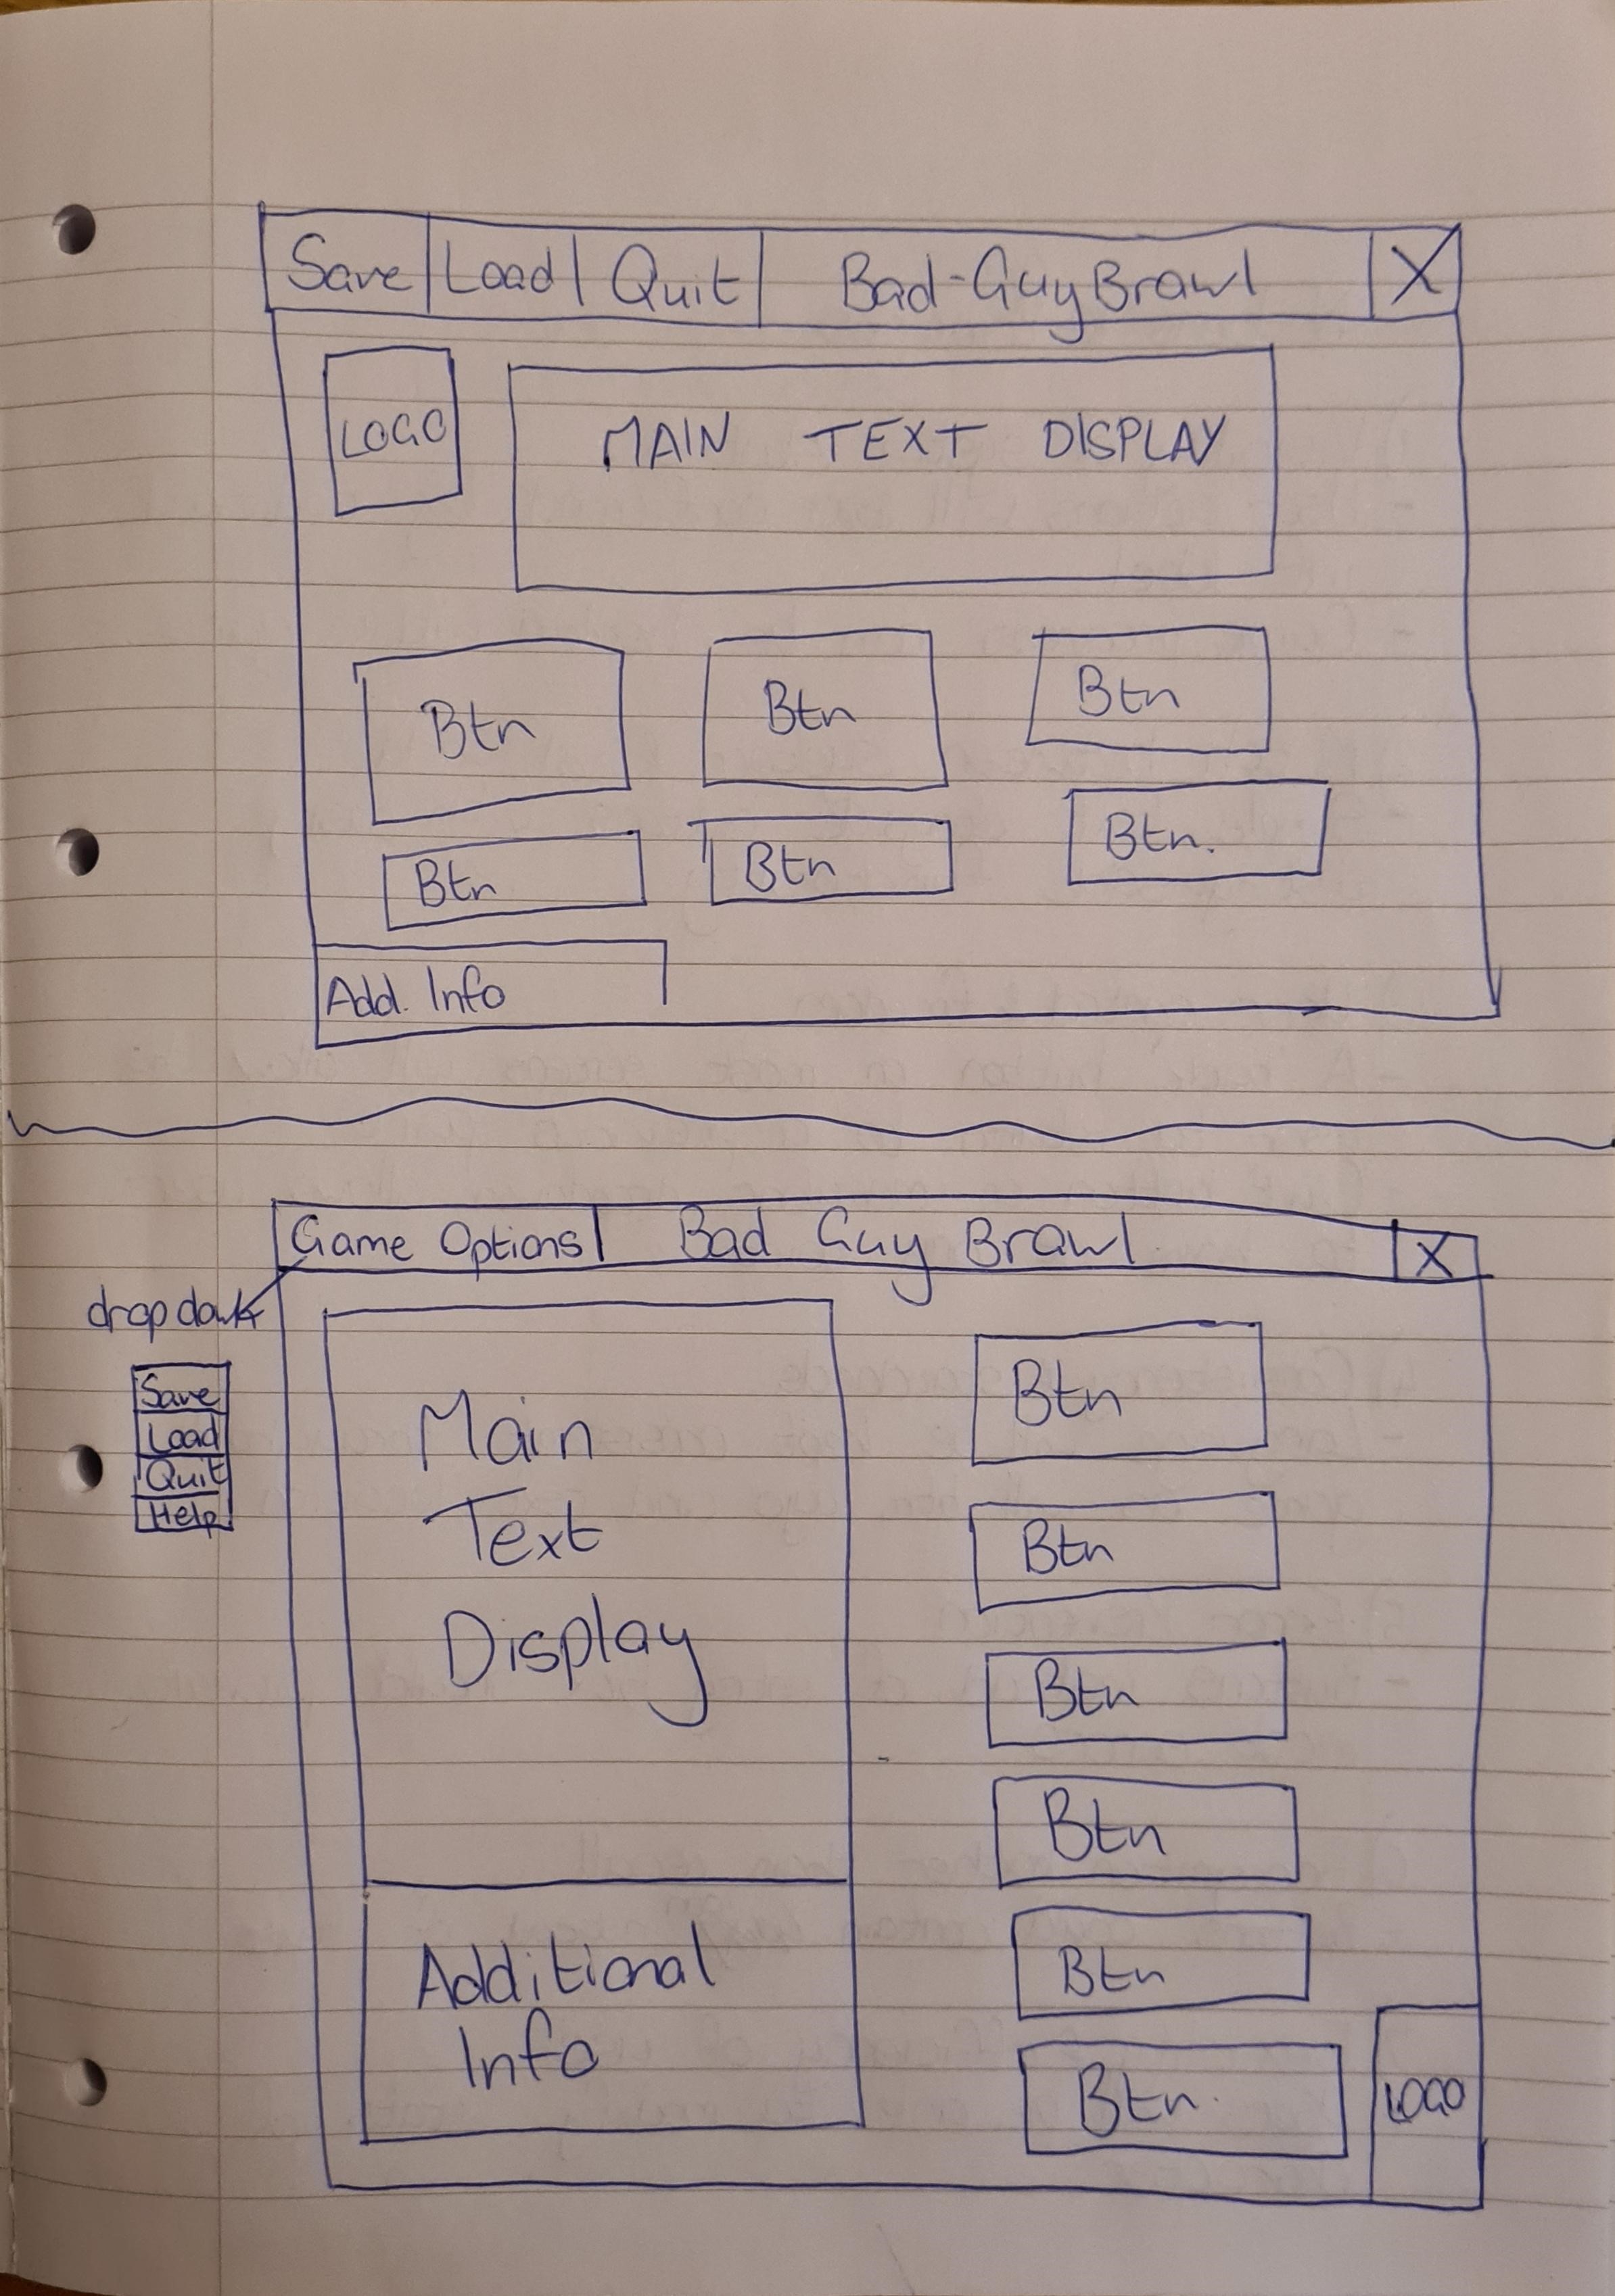 Save Load Quit Bad-Guy Brawl X
LOGO
MAIN TEXT DISPLAY
Btn Btn Btn
Btn Btn Btn.
Add. Info
Game Options Bad Guy Brawl X
drop down
Save
Load
Quit
Help
Main
Text
Display
Btn
Btn
Btn
Btn
Additional
Info
Btn
Btn.
LOGO